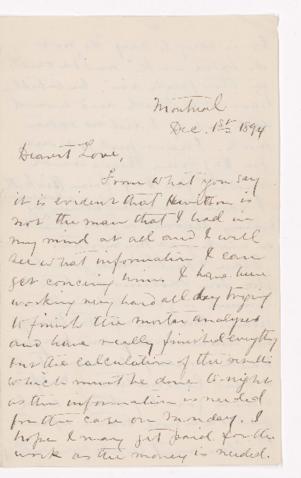 Montreal
Dec. 1st 1894
Dearest Love,
From what you say
it is evident that Hewittson is
not the man that I had in
my mind at all and I will
see what information I can
get concering him. I have been
working very hard all day trying
to finish the mortar analyses
and have really finished everything
but the calculation of the results
which must be done to-night
as the information is needed
for the case on Monday. I
hope I may get paid for the
work as the money is needed.